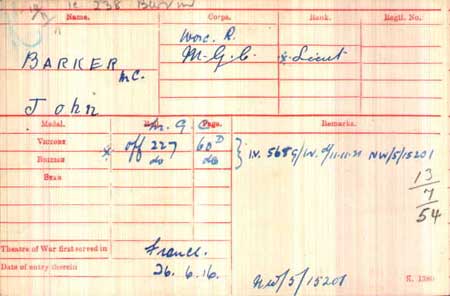 Name. Corps. Rank. Regtl. No.
BARKER M.C. Worc. R.
John M.G.C. * Lieut
Medal. Page. Remarks.
M.G.C.
VICTORY * off 227 60D } IV. 5689/W. d/11-11-21 NW/5/15201
BRITISH do do
STAR
13
7
54
Theatre of War first served in France.
Date of entry therein 26.6.16.
NW/5/15201
K. 1380